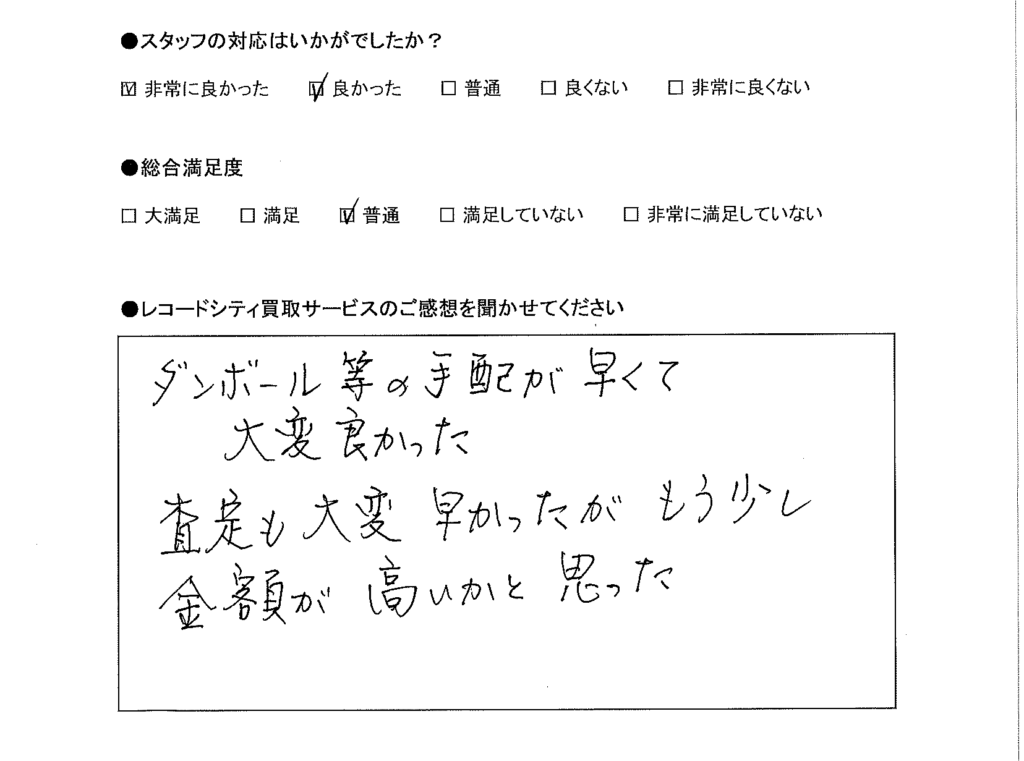 ●スタッフの対応はいかがでしたか？
☑ 非常に良かった ☑ 良かった □ 普通 □ 良くない □ 非常に良くない
●総合満足度
□ 大満足 □ 満足 ☑ 普通 □ 満足していない □ 非常に満足していない
●レコードシティ買取サービスのご感想を聞かせてください
ダンボール等の手配が早くて
大変良かった
査定も大変早かったがもう少し
金額が高いかと思った